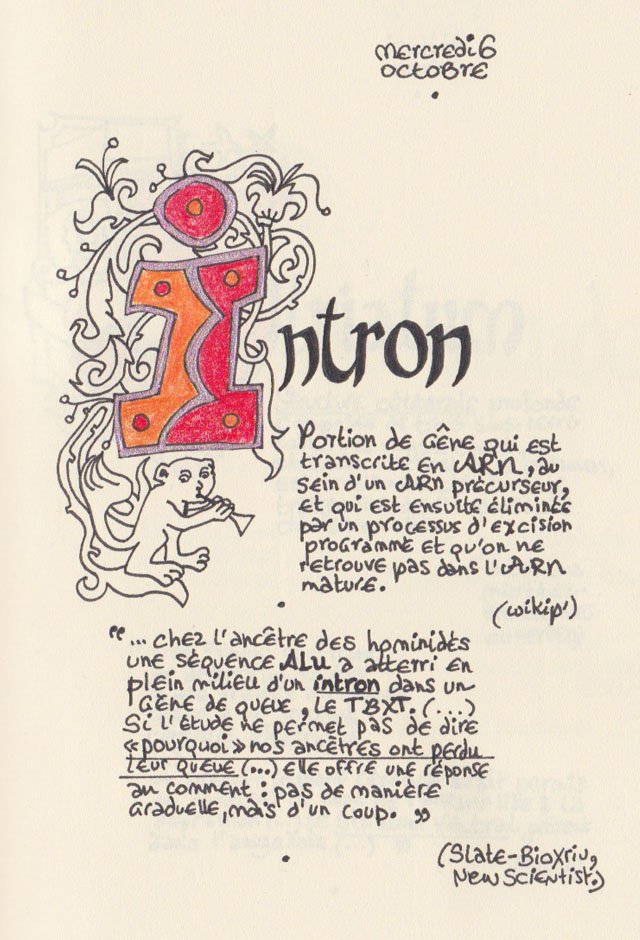 mercredi 6
octobre
Intron
Portion de gêne qui est
transcrite en ARN, au
sein d'un ARN précurseur,
et qui est ensuite éliminée
par un processus d'excision
programmé et qu'on ne
retrouve pas dans l'ARN
mature.
(wikip')
"... chez l'ancêtre des hominidés
une séquence ALU a atterri en
plein milieu d'un intron dans un
gène de queue, le TBXT. (...)
Si l'étude ne permet pas de dire
«pourquoi» nos ancêtres ont perdu
leur queue (...) elle offre une réponse
au comment : pas de manière
graduelle, mais d'un coup. "
(Slate-BioXriv,
New Scientist.)